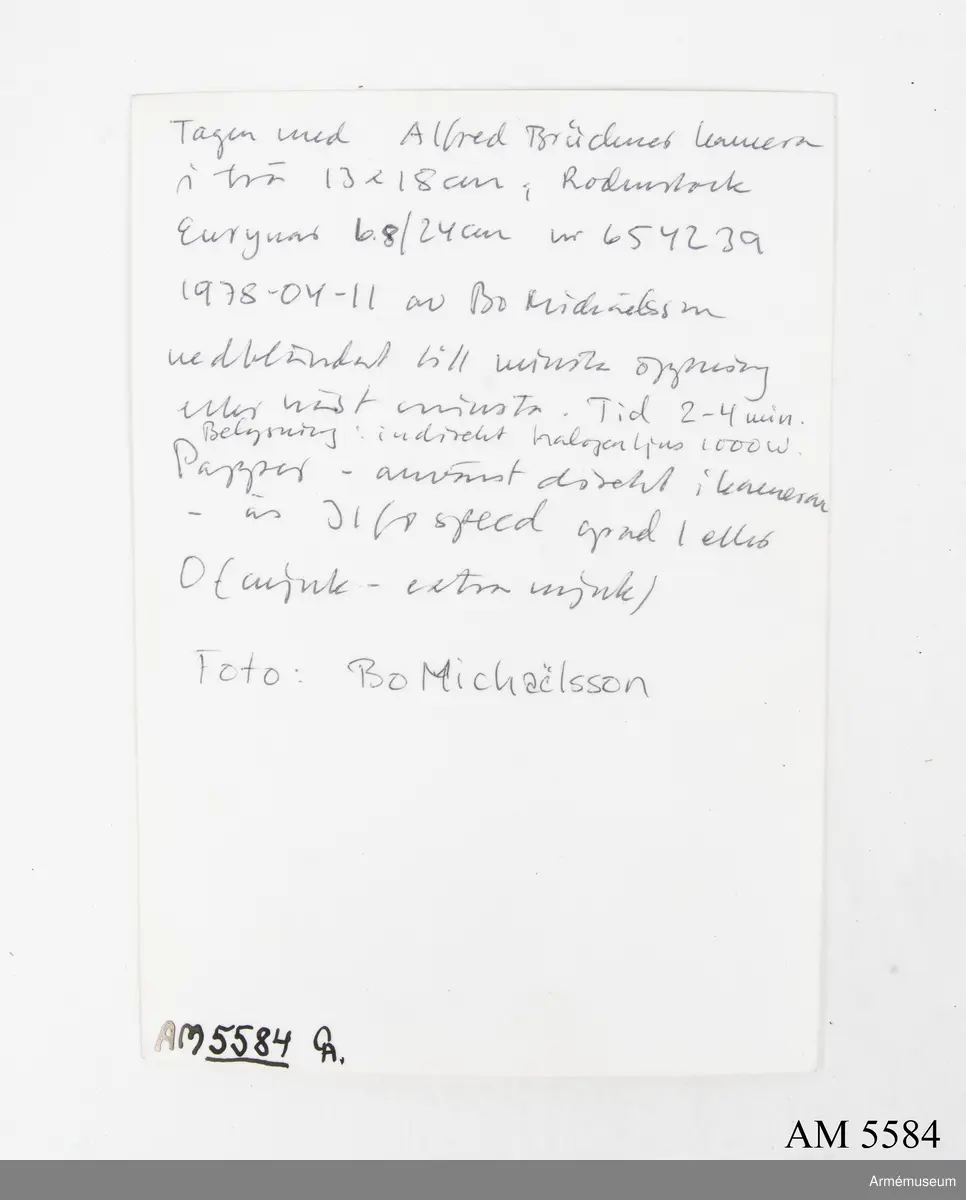 Tagen med Alfred Brückners kamera
i trä 13x18cm, Rodenstock
Eurynar 6.8/24cm nr 654239
1978-04-11 av Bo Michaëlsson
nedbländat till minsta öppning
eller näst minsta. Tid 2-4 min.
Belysning: indirekt halogenljus 1000W.
Papper - använst direkt i kameran
- är Ilfospeed grad 1 eller
0 (mjuk - extra mjuk)
Foto: Bo Michaëlsson
AM5584 GA.
AM 5584
Armémuseum